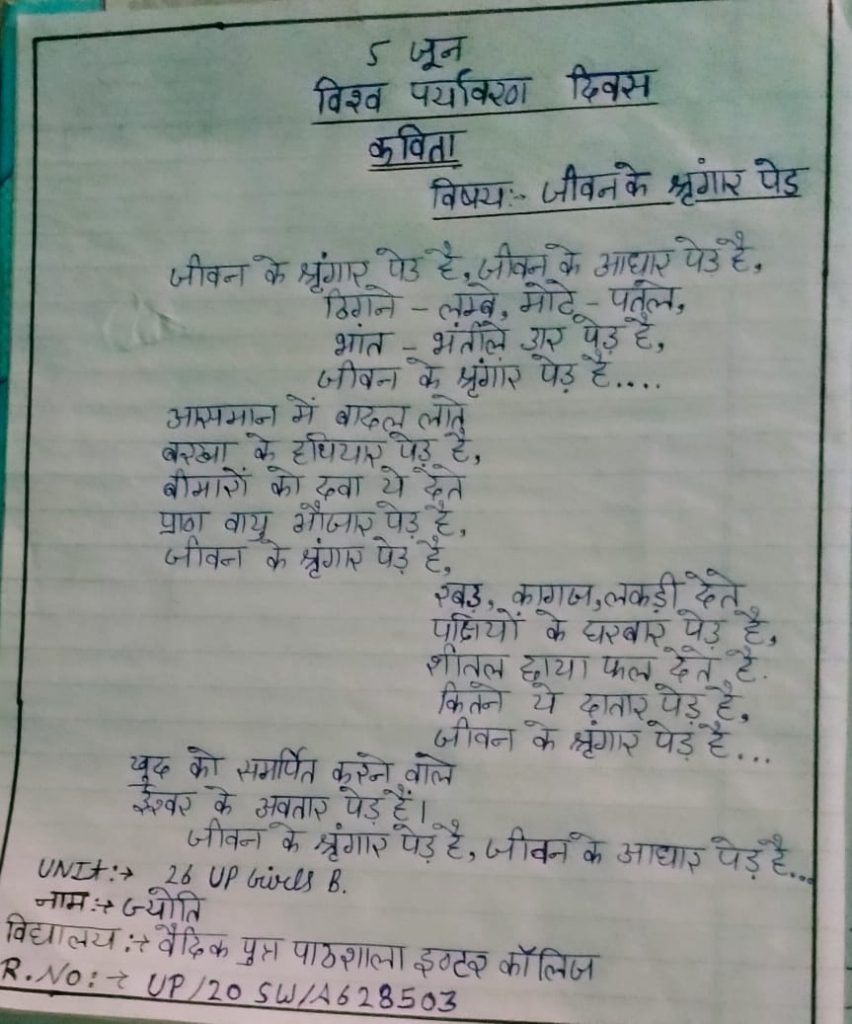 5 जून
विश्व पर्यावरण दिवस
कविता
विषय:- जीवन के श्रृंगार पेड़
जीवन के श्रृंगार पेड़ है, जीवन के आधार पेड़ है,
ठिगने - लम्बे, मोटे - पतले,
भांत - भंतीले डार पेड़ है,
जीवन के श्रृंगार पेड़ है....
आसमान में बादल लाते
बरखा के हथियार पेड़ है,
बीमारों को दवा ये देते
प्राण वायु औजार पेड़ है,
जीवन के श्रृंगार पेड़ है,
रबड़, कागज, लकड़ी देते
पक्षियों के घरबार पेड़ है,
शीतल छाया फल देते है.
कितने ये दातार पेड़ है,
जीवन के श्रृंगार पेड़ है...
खुद को समर्पित करने वाले
ईश्वर के अवतार पेड़ हैं।
जीवन के श्रृंगार पेड़ है, जीवन के आधार पेड़ है...
UNIt:→ 26 UP Girls B.
नाम:→ ज्योति
विद्यालय:→ वैदिक पुत्री पाठशाला इण्टर कॉलिज
R.No:→ UP/20 SW/A628503